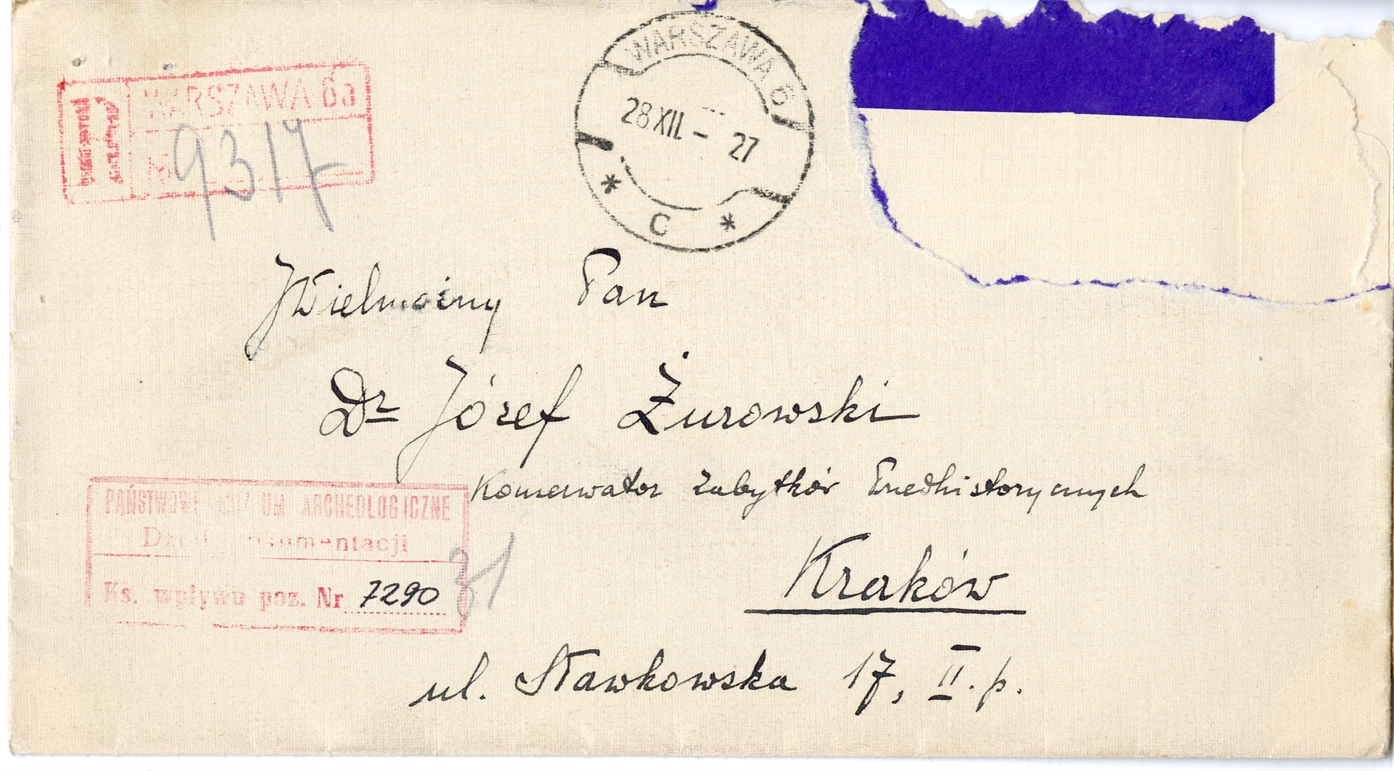 R
WARSZAWA 6a
9317
WARSZAWA 6
28 XII — 27
* C *
JWielmożny Pan
Dr Józef Żurowski
Konserwator Zabytków Przedhistorycznych
Kraków
ul. Sławkowska 17, II. p.
PAŃSTWOWE MUZEUM ARCHEOLOGICZNE
Dział Dokumentacji
Ks. wpływu poz. Nr 7290
31